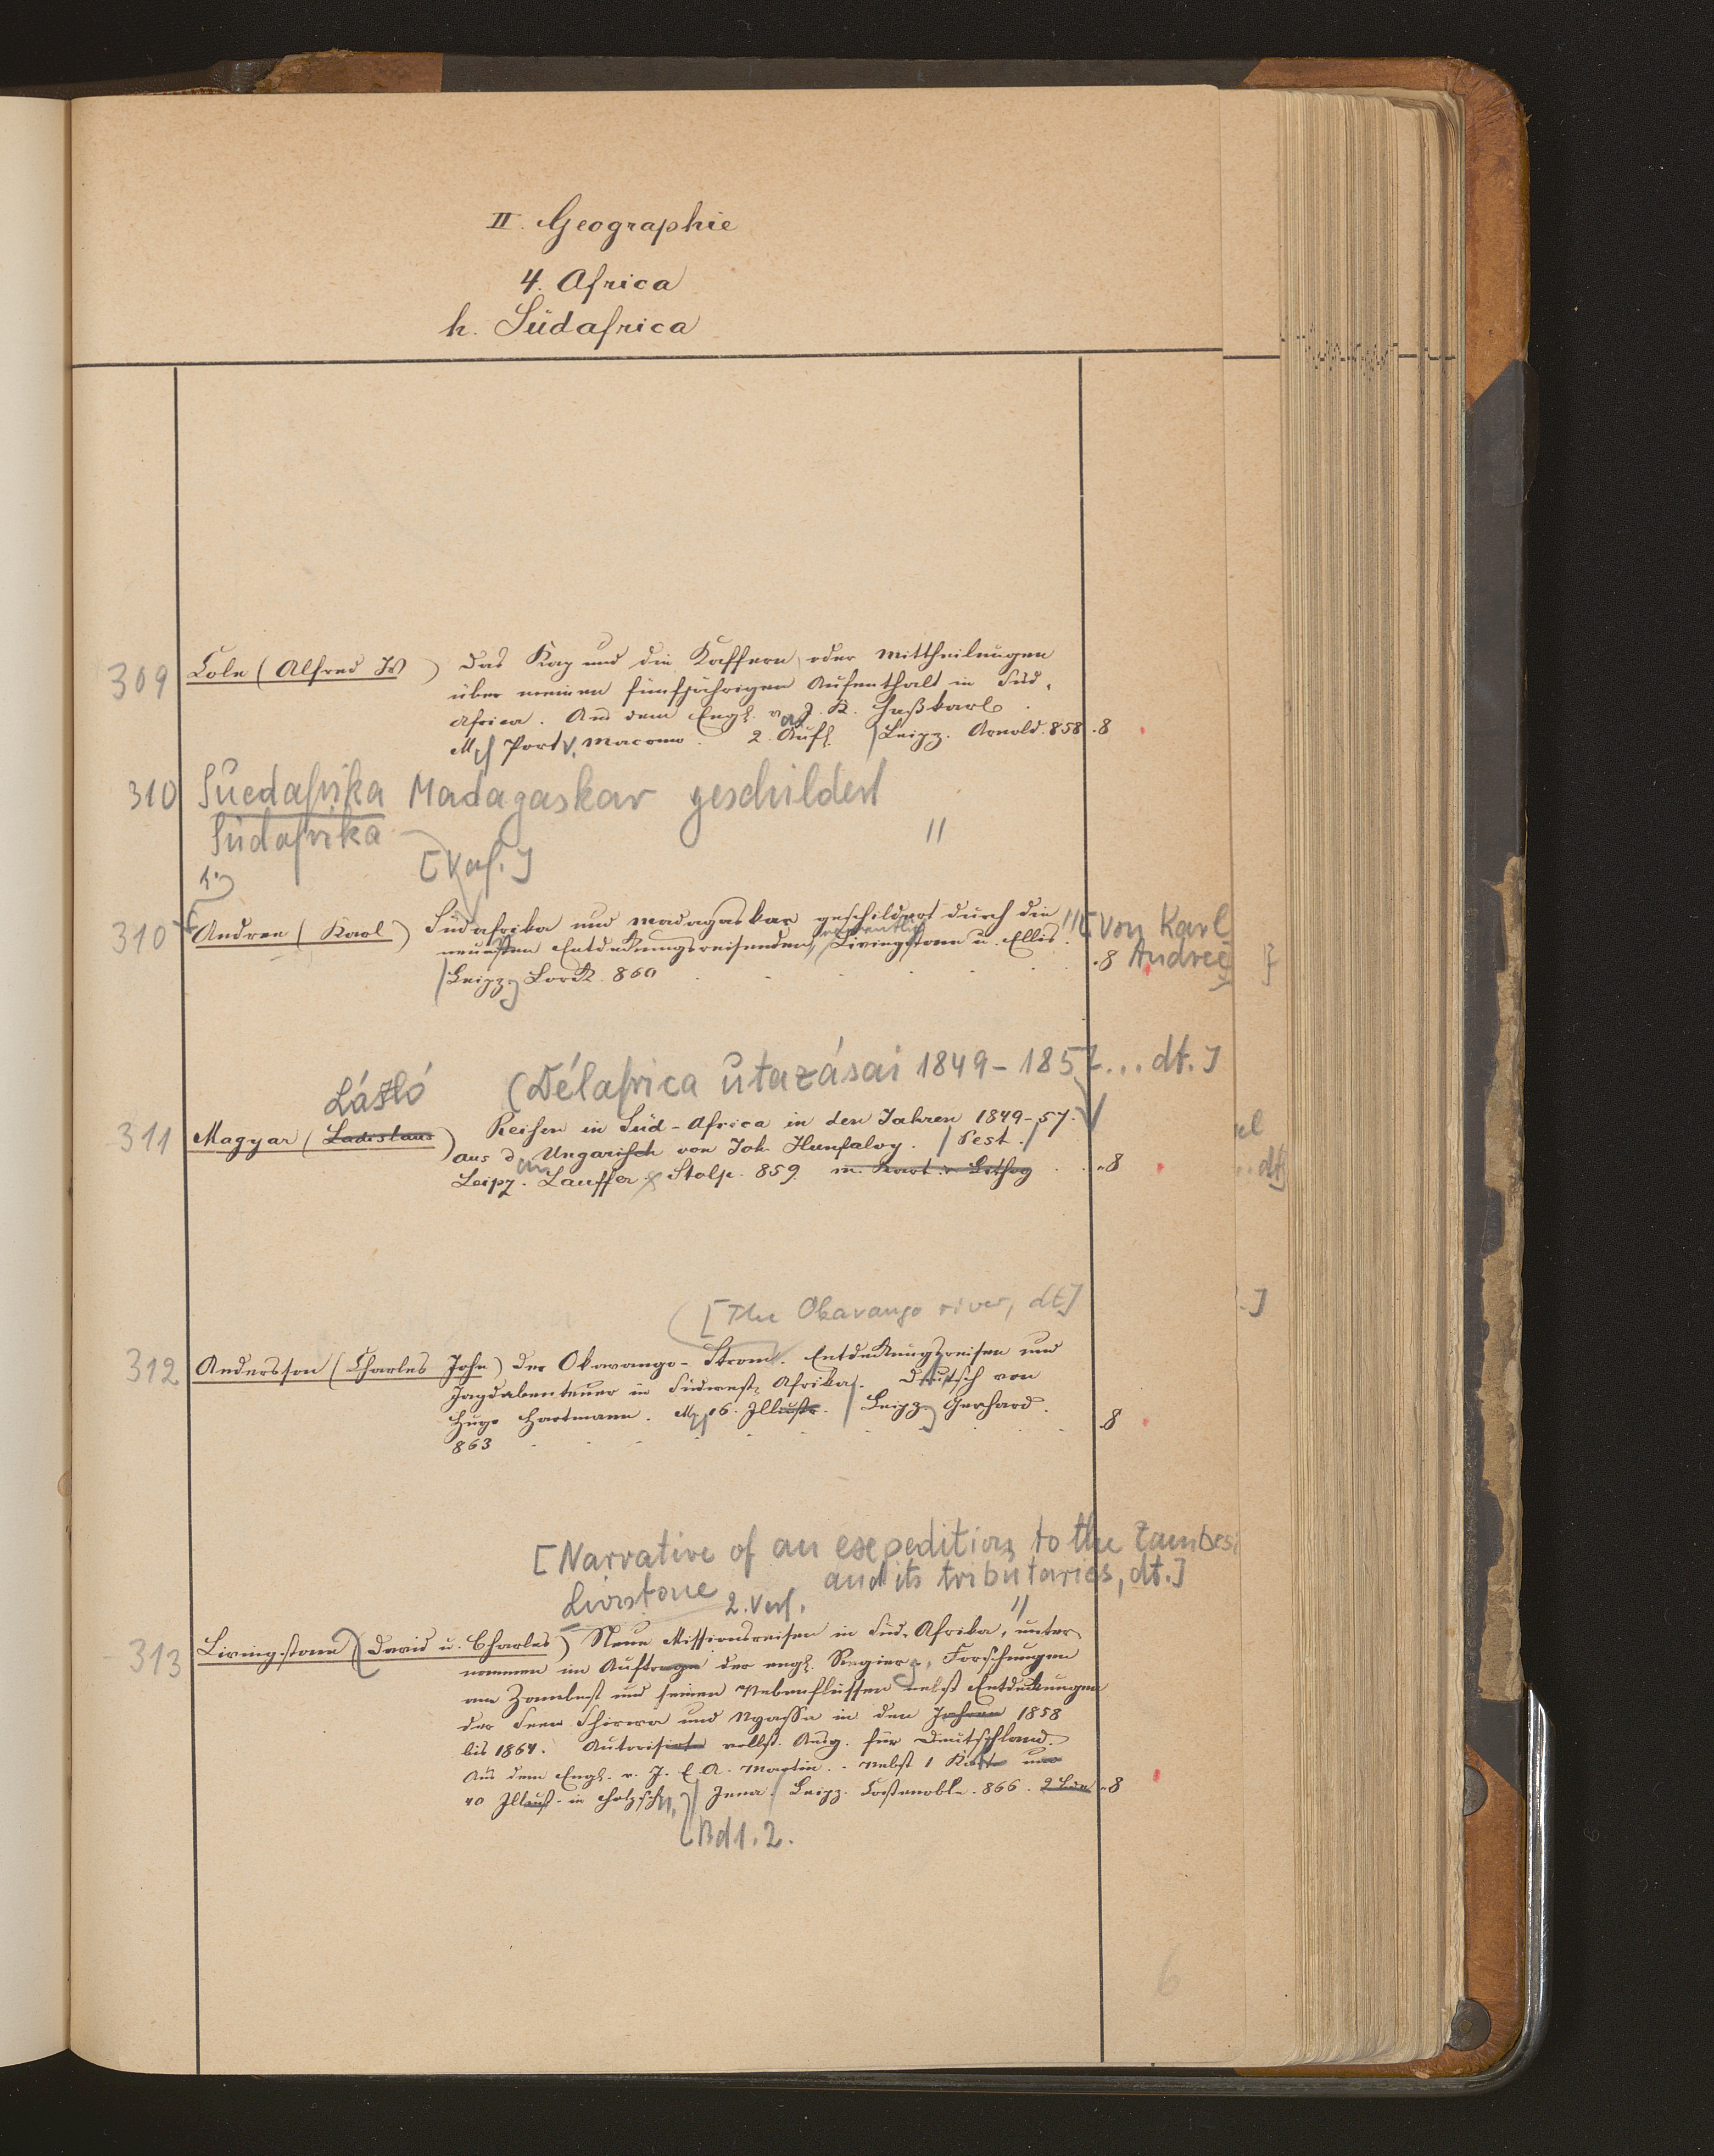 II. Geographie
4. Africa
h. Südafrica
309 Cole (Alfred W) Das Kap und die Kaffern oder Mittheilungen
über meinen fünfjährigen Aufenthalt in Süd-
africa. Aus dem Engl. v. J. K. Haßkarl.
M. Port v. Macomo. 2. Aufl. Leipz. Arnold. 858 .8
310 Suedafrika Madagaskar geschildert
Südafrika
[Verf.] "
1.)
310 Andree (Karl) Südafrika und Madagaskar geschildert durch die " [von Karl
neuesten Entdeckungsreisenden, namentlich Livingstone u. Ellis.
Leipz. Lorck. 860 .8 Andree]
László (Délafrica utazásai 1849-1857... dt.]
311 Magyar (Ladislaus) Reisen in Süd-Africa in den Jahren 1849-57.
aus d. Ungarisch von Joh. Hunfalvy. Pest.
Leipz. Lauffer & Stolp. 859. m. Kart. Lithog .8
[The Okavango river, dt]
312 Andersson (Charles John) Der Okavango-Strom. Entdeckungsreisen und
Jagdabenteuer in Südwest-Afrika. Deutsch von
Hugo Hartmann. M. 16. Illustr. Leipz. Gerhard. .8
863
[Narrative of an expedition to the Zambesi
and its tributaries, dt.]
Livstone 2. Verf. "
313 Livingstone (David u. Charles) Neue Missionsreisen in Süd-Afrika, unter-
nommen im Auftrage der engl. Regierg. Forschungen
am Zambesi und seinen Nebenflüssen nebst Entdeckungen
der Seen Schirwa und Nyassa in den Jahren 1858
bis 1864. Autorisirte vollst. Ausg. für Deutschland.
Aus dem Engl. v. J. E. A. Martin. Nebst 1 Karte und
40 Illust. in Holzschn. Jena. Leipz. Costenoble. 866. 2 Bde .8
Bd 1.2.
6